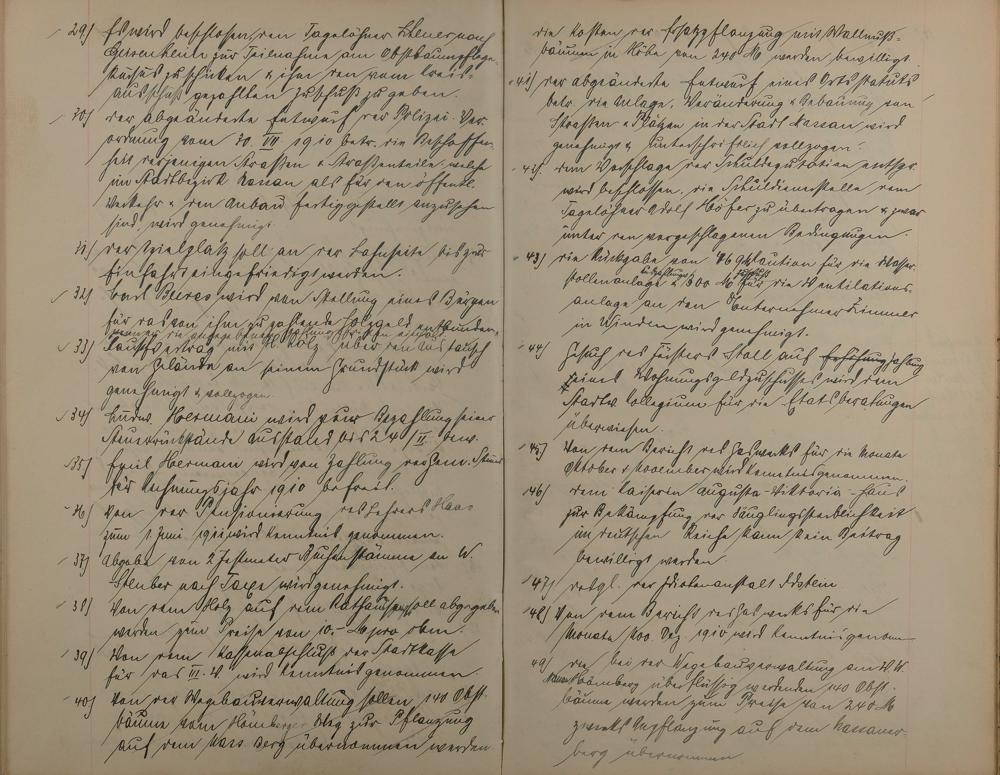 29) Es wird beschlossen, den Tagelöhner Steuer nach
Geisenheim zur Teilnahme am Obstbaumpflege-
kursus zu schicken & ihm den vom Kreis-
ausschuß gezahlten Zuschuß zu geben.
30) der abgeänderte Entwurf der Polizei-Ver-
ordnung vom 30. VII 1910 betr. die Beschaffen-
heit derjenigen Straßen & Straßenteile welche
im Stadtbezirk Nassau als für den öffentl.
Verkehr & den Anbau fertiggestellt anzusehen
sind, wird genehmigt.
31) der Spielplatz soll an der Bahnseite bis zur
Einfahrt eingefriedigt werden.
32) Carl wird von Stellung eines Bürgen
für das von ihm zu zahlende Holzgeld entbunden
33) Tauschvertrag mit über den Austausch
von Gelände an seinem Grundstück wird
genehmigt & vollzogen.
34) Ludw. Hermani wird zur Bezahlung seiner
Steuerrückstände Ausstand bis 24/II. bew.
35) Emil Hermani wird von Zahlung der Gem. Steuer
für Rechnungsjahr 1910 befreit.
36) Von der Pensionierung des Lehrers Haas
zum 1 Juni 1911 wird Kenntnis genommen.
37) Abgabe von 2 Festmeter Buchenstämme an W.
Steuber nach Taxe wird genehmigt.
38) Von dem Holz auf dem Rathaus soll abgegeben
werden zum Preise von 10.- M pro rbm.
39) Von dem Kassenabschluß der Stadtkasse
für das III. V. wird Kenntnis genommen.
40) Von der Wegebauverwaltung sollen 140 Obst-
bäume vom Hömberger Weg zur Pflanzung
auf dem Nass. Berg übernommen werden
die Kosten der Ersatzpflanzung mit Wallnuß-
bäumen in Höhe von 240 M werden bewilligt.
41) der abgeänderte Entwurf eines Ortsstatuts
betr. die Anlage, Veränderung & Bebauung von
Straßen & Plätzen in der Stadt Nassau wird
genehmigt & unterschriftlich vollzogen.
42) dem Vorschlage der Schuldeputation entspr.
wird beschlossen, die Schuldienerstelle dem
Tagelöhner Adolf Höfer zu übertragen & zwar
unter den vorgeschlagenen Bedingungen.
43) die Rückgabe von Kaution für die Wasser-
stollenanlage & 600 M für die Ventilations-
anlage an den Unternehmer Zimmer
in Winden wird genehmigt.
44) Gesuch des Försters Stoll auf Erhöhung Zahlung
eines Wohnungsgeldzuschusses wird dem
Stadtv. Collegium für die Etatsberatungen
überwiesen.
45) Von dem Bericht des Gaswerks für die Monate
Oktober & November wird Kenntnis genommen.
46) dem Kaiserin Augusta-Viktoria-Haus
zur Bekämpfung der Säuglingssterblichkeit
im deutschen Reiche kann kein Beitrag
bewilligt werden.
47) desgl. der Idiotenanstalt Idstein.
48) Von dem Bericht des Gaswerks für die
Monate Nov Dez 1910 wird Kenntnis genom
49) die bei der Wegebauverwaltung am
Hömberg überflüssig werdenden 140 Obst-
bäume werden zum Preise von 240 M
zwecks Anpflanzung auf dem Nassauer-
berg übernommen